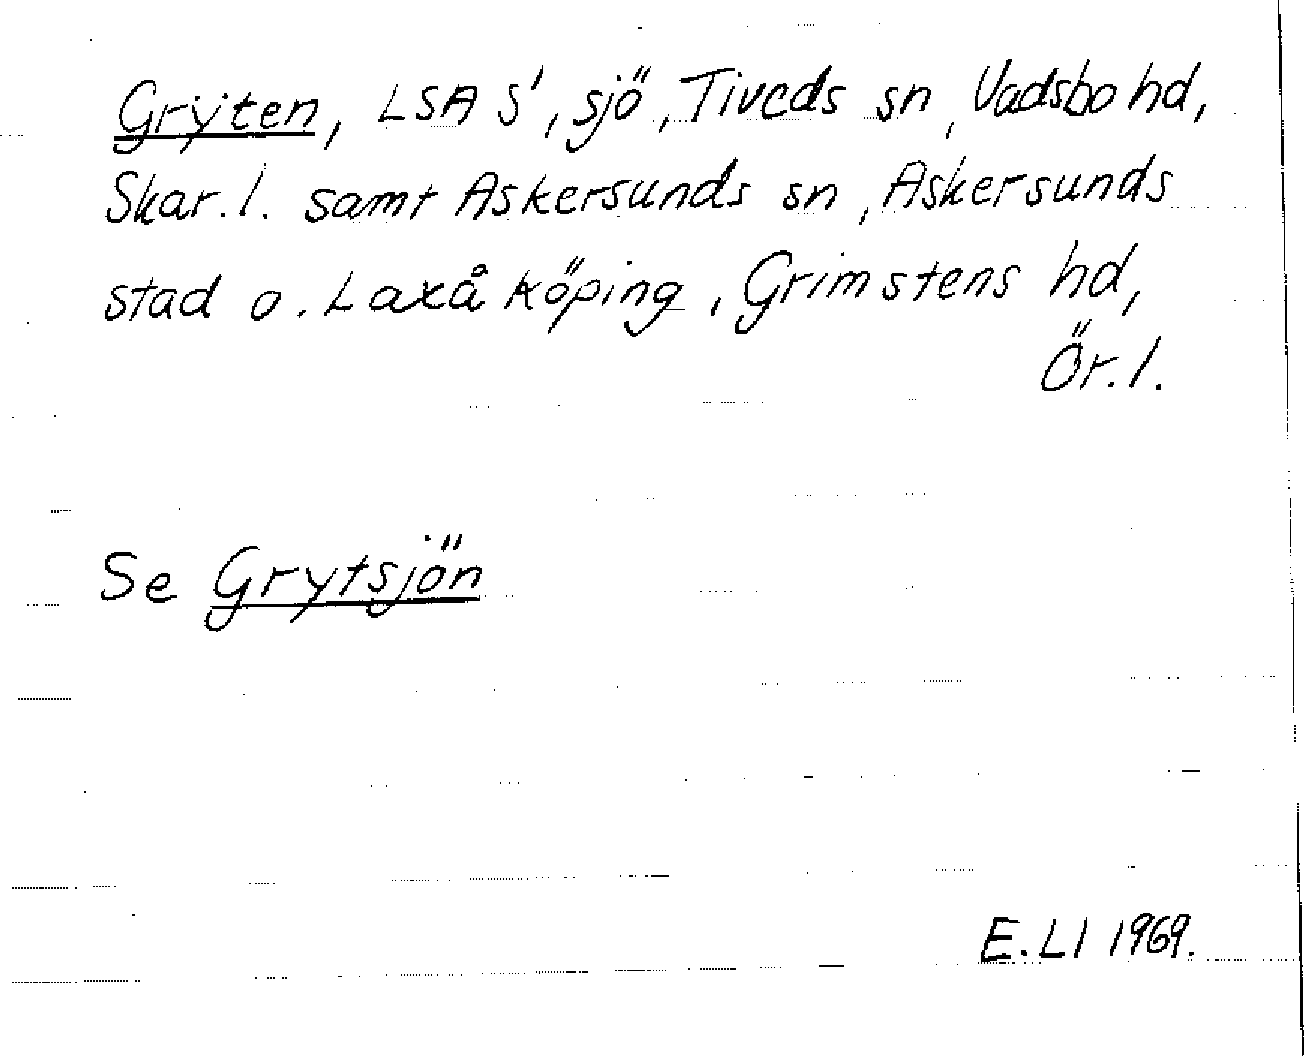 Gryten, LSA S', sjö, Tiveds sn, Vadsbo hd,
Skar. l. samt Askersunds sn, Askersunds
stad o. Laxå köping, Grimstens hd,
Ör. l.
Se Grytsjön
E. LI 1969.